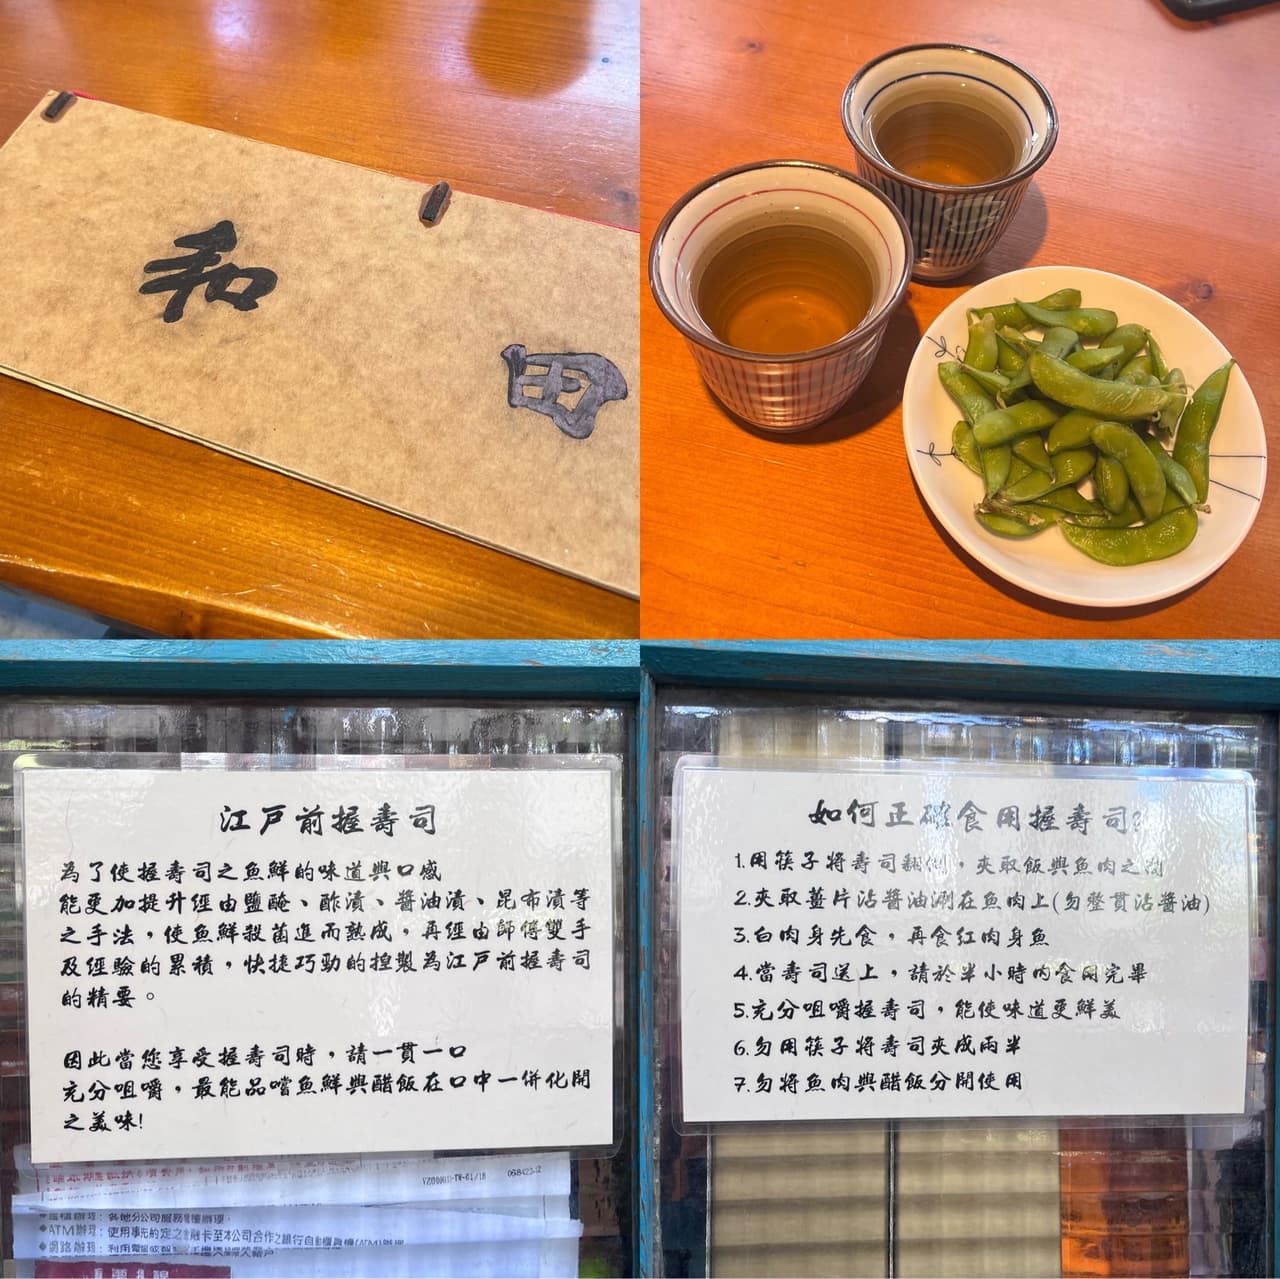 和
田
江戸前握壽司
為了使握壽司之魚鮮的味道與口感
能更加提升經由鹽醃、酢漬、醬油漬、昆布漬等
之手法，使魚鮮殺菌進而熟成，再經由師傅雙手
及經驗的累積，快捷巧勁的捏製為江戸前握壽司
的精要。
因此當您享受握壽司時，請一貫一口
充分咀嚼，最能品嚐魚鮮與醋飯在口中一併化開
之美味!
如何正確食用握壽司?
1.用筷子將壽司翻側，夾取飯與魚肉之間
2.夾取薑片沾醬油涮在魚肉上(勿整貫沾醬油)
3.白肉身先食，再食紅肉身魚
4.當壽司送上，請於半小時內食用完畢
5.充分咀嚼握壽司，能使味道更鮮美
6.勿用筷子將壽司夾成兩半
7.勿將魚肉與醋飯分開使用
各地分公司服務
◆ATM辦理：使用事先約定之金融卡至本公司合作之銀行自動
◆網路辦理：利用電